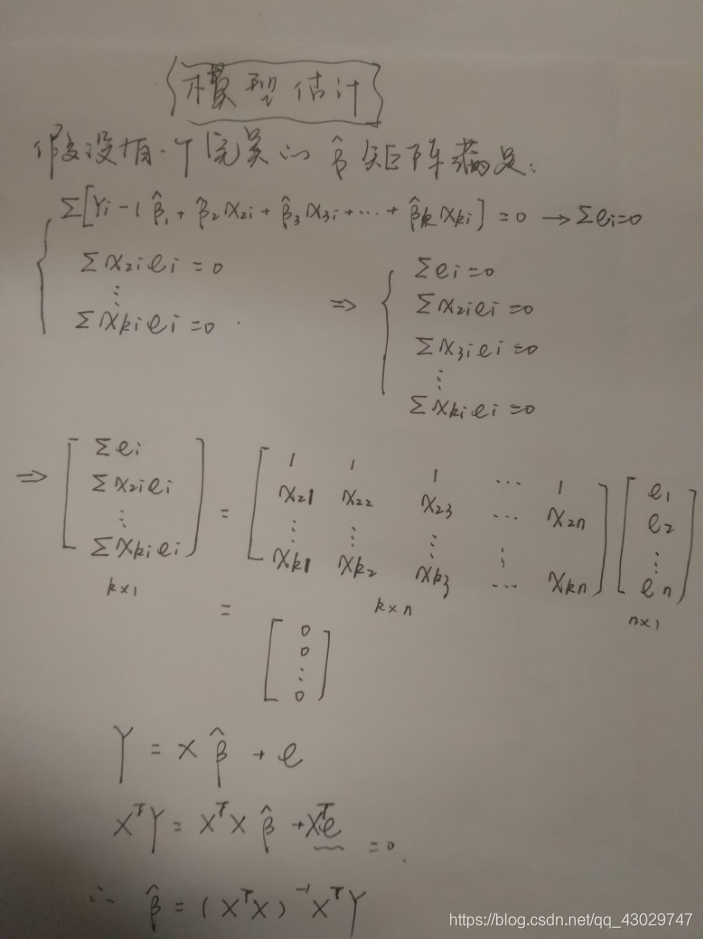 模型估计
假设有一个完美的 β̂ 矩阵满足:
Σ[Yi-(β̂₁+β̂₂X₂i+β̂₃X₃i+⋯+β̂kXki]=0 → Σei=0
ΣX₂iei=0
⋮
ΣXkiei=0.
⇒
Σei=0
ΣX₂iei=0
ΣX₃iei=0
⋮
ΣXkiei=0
⇒ [Σei ΣX₂iei ⋮ ΣXkiei] = [1 1 1 ⋯ 1
X₂₁ X₂₂ X₂₃ ⋯ X₂n
⋮ ⋮ ⋮ ⋮
Xk₁ Xk₂ Xk₃ ⋯ Xkn] [e₁ e₂ ⋮ en]
k×1 k×n n×1
= [0 0 ⋮ 0]
Y = Xβ̂ + e
XᵀY = XᵀXβ̂ + Xᵀe =0.
∴ β̂ = (XᵀX)⁻¹XᵀY
https://blog.csdn.net/qq_43029747